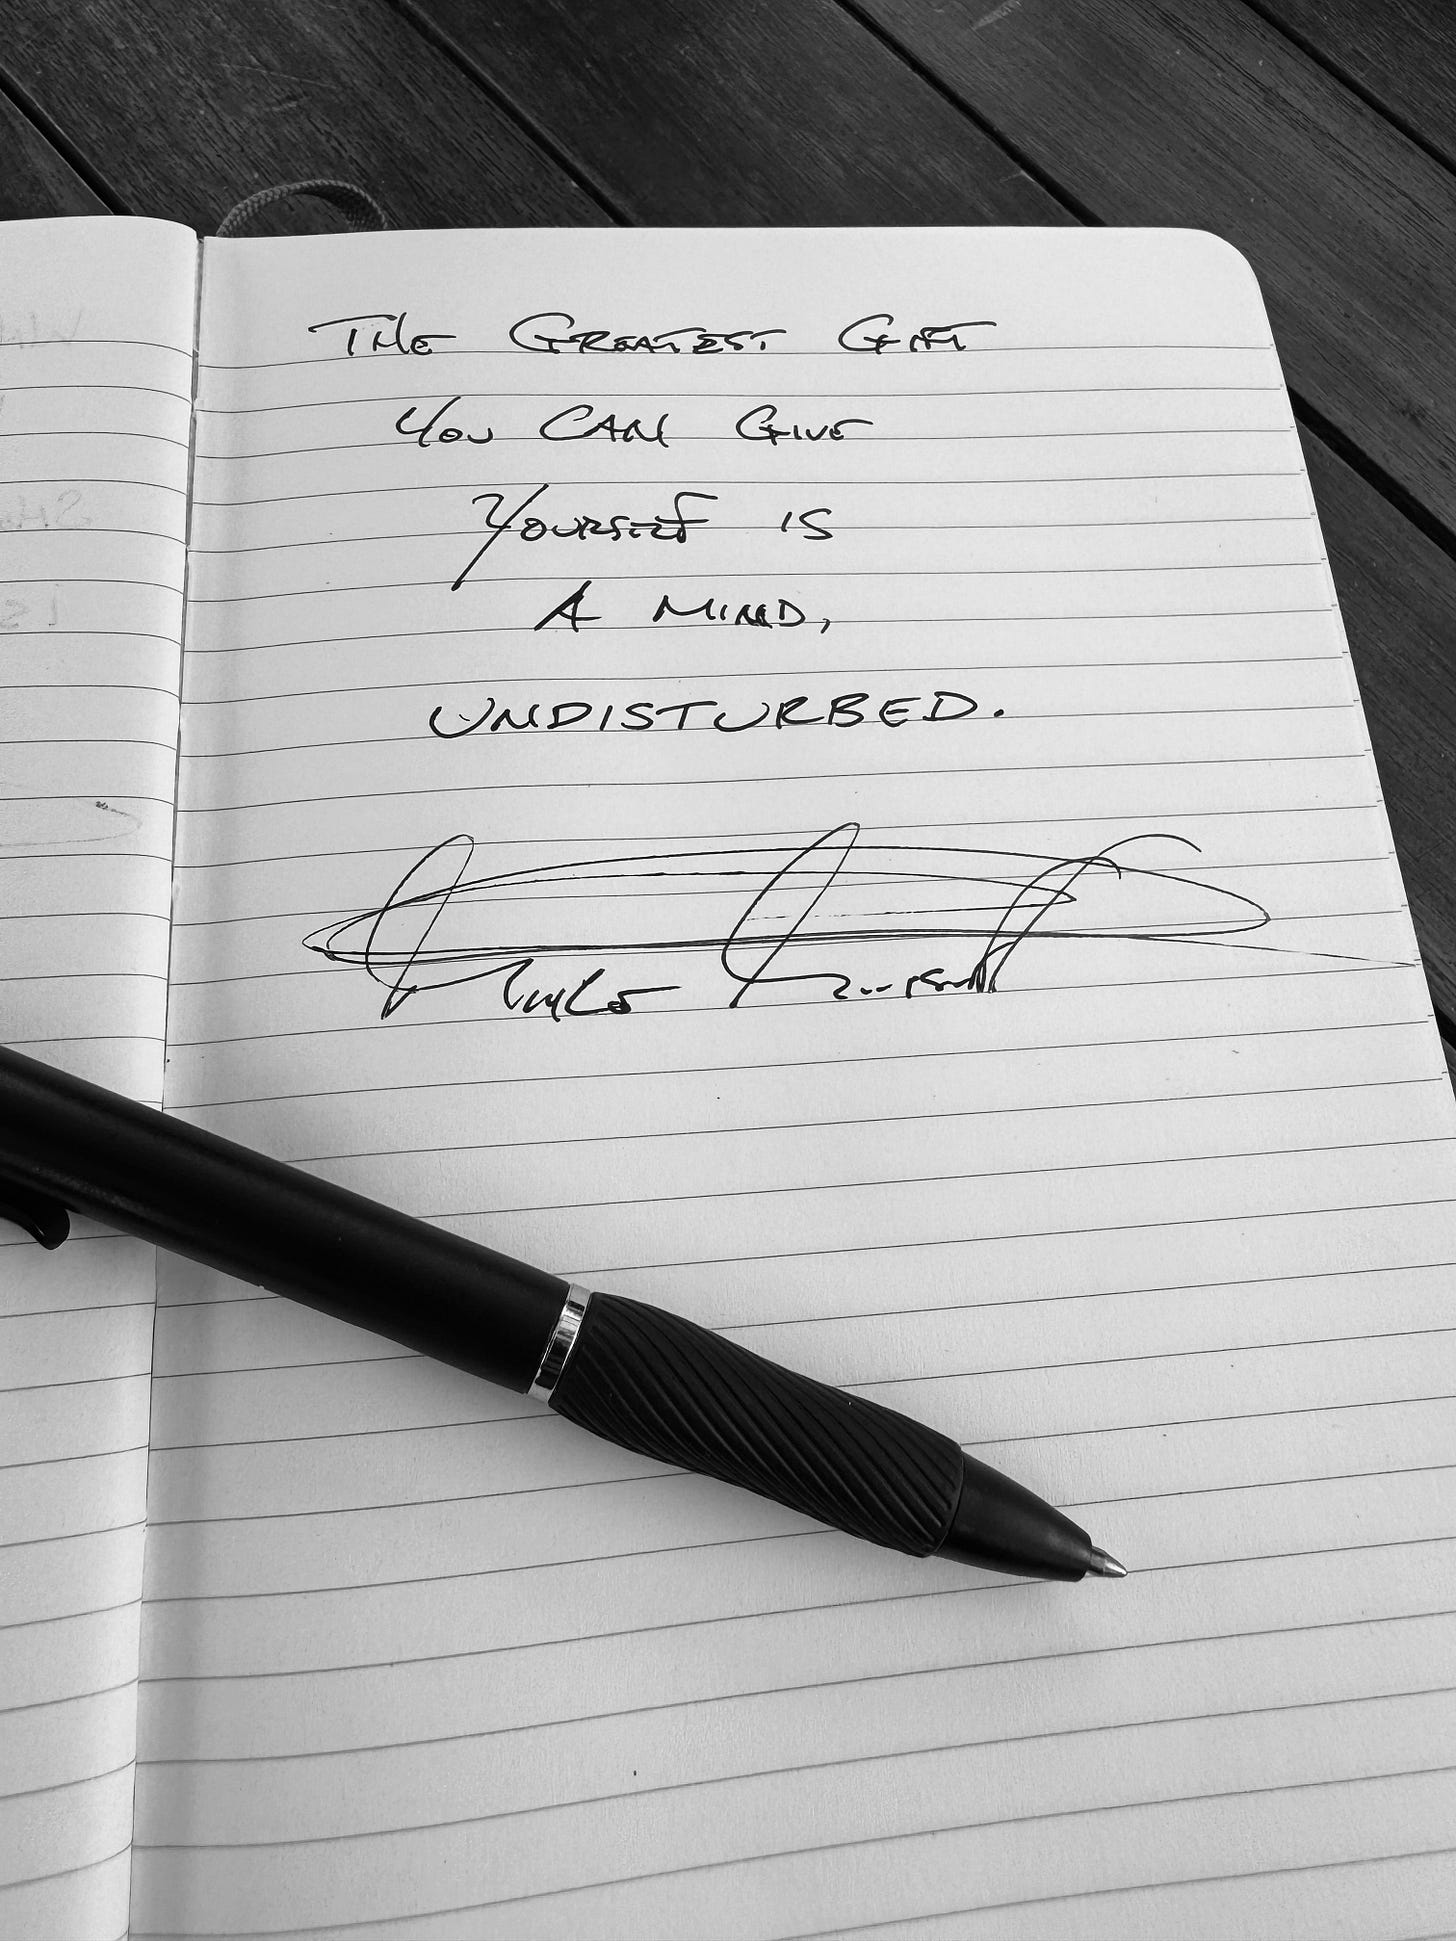 THE GREATEST GIFT
YOU CAN GIVE
YOURSELF IS
A MIND,
UNDISTURBED.